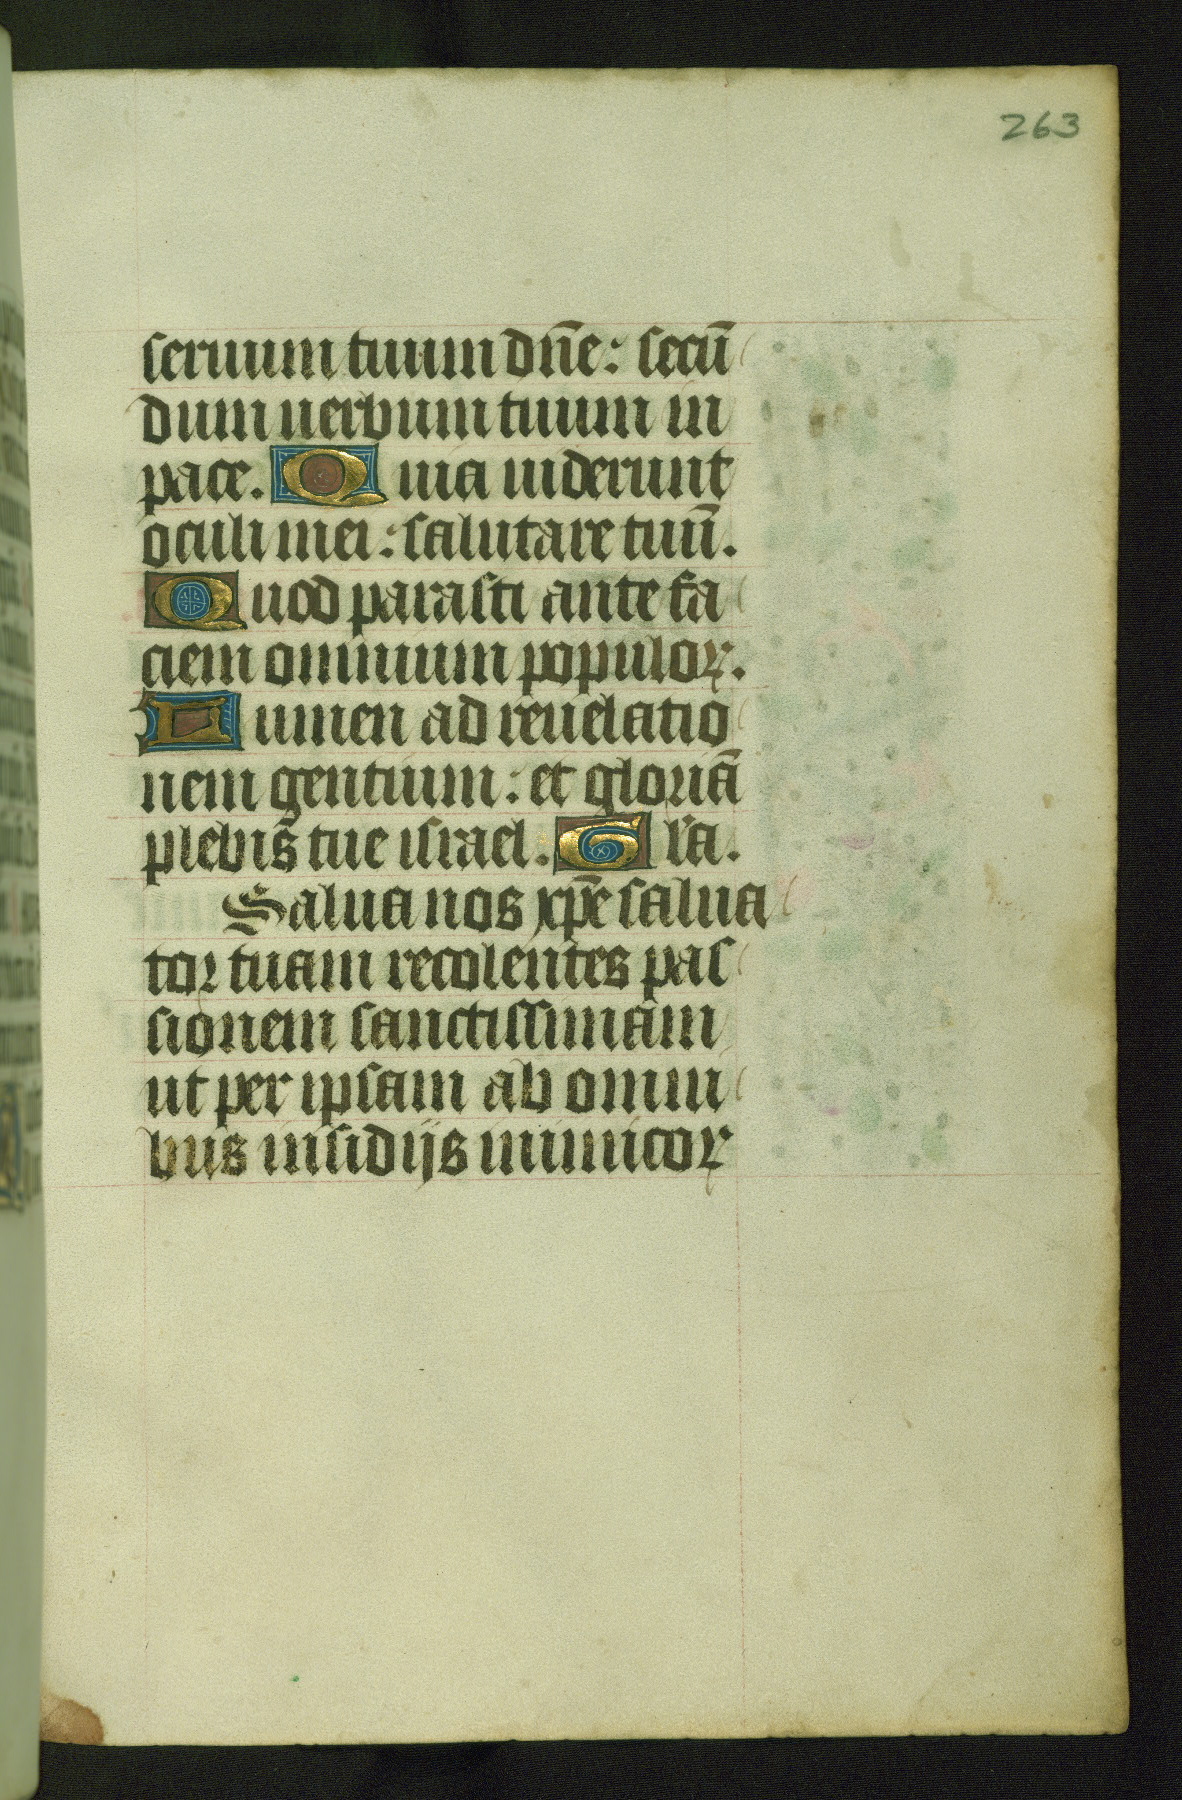 263
seruum tuum dn̄e: secū
dum uerbum tuum in
pace. Quia uiderunt
oculi mei: salutare tuū.
Quod parasti ante fa
ciem omnium populoꝝ.
Lumen ad reuelatio
nem gentium: et gloriā
plebis tue israel. Gl'ia.
Salua nos xp̄e salua
tor tuam recolentes pas
sionem sanctissimam
ut per ipsam ab omni
bus insidijs inimicoꝝ